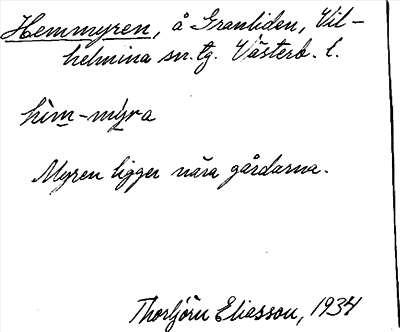 Hemmyren, å Granliden, Vil-
helmina sn. tg. Västerb. l.
hèm-mýra
Myren ligger nära gårdarna.
Thorbjörn Eliasson, 1934